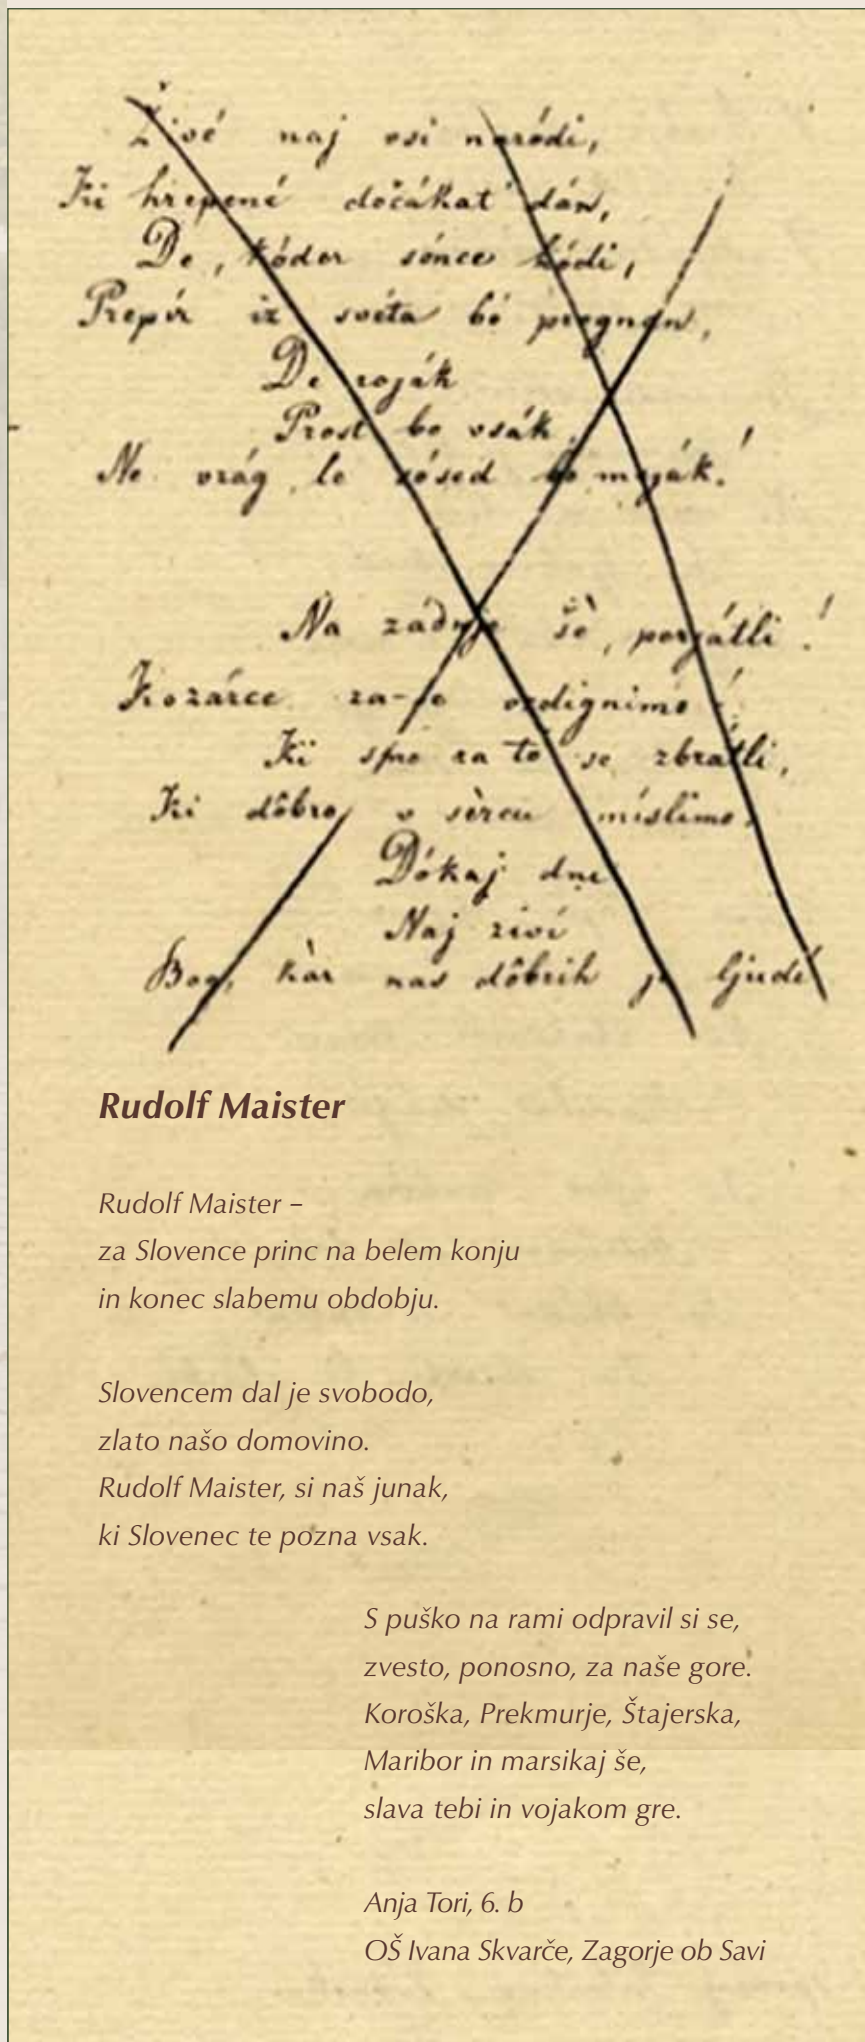 Živé naj vsi naródi,
Ki hrepené dočákat dán,
De, kóder sónce hódi,
Prepír iz svéta bó pregnan,
De roják
Prost bo vsák,
Ne vrág, le sósed bo mejak!
Na zádnje šè, perjátli!
Kozárce za-se vzdignimo!
Ki smo za tó se zbrátli,
Ki dôbro v sèrcu míslimo.
Dókaj dni
Naj živí
Bog, kàr nas dôbrih je ljudí
Rudolf Maister
Rudolf Maister –
za Slovence princ na belem konju
in konec slabemu obdobju.
Slovencem dal je svobodo,
zlato našo domovino.
Rudolf Maister, si naš junak,
ki Slovenec te pozna vsak.
S puško na rami odpravil si se,
zvesto, ponosno, za naše gore.
Koroška, Prekmurje, Štajerska,
Maribor in marsikaj še,
slava tebi in vojakom gre.
Anja Tori, 6. b
OŠ Ivana Skvarče, Zagorje ob Savi